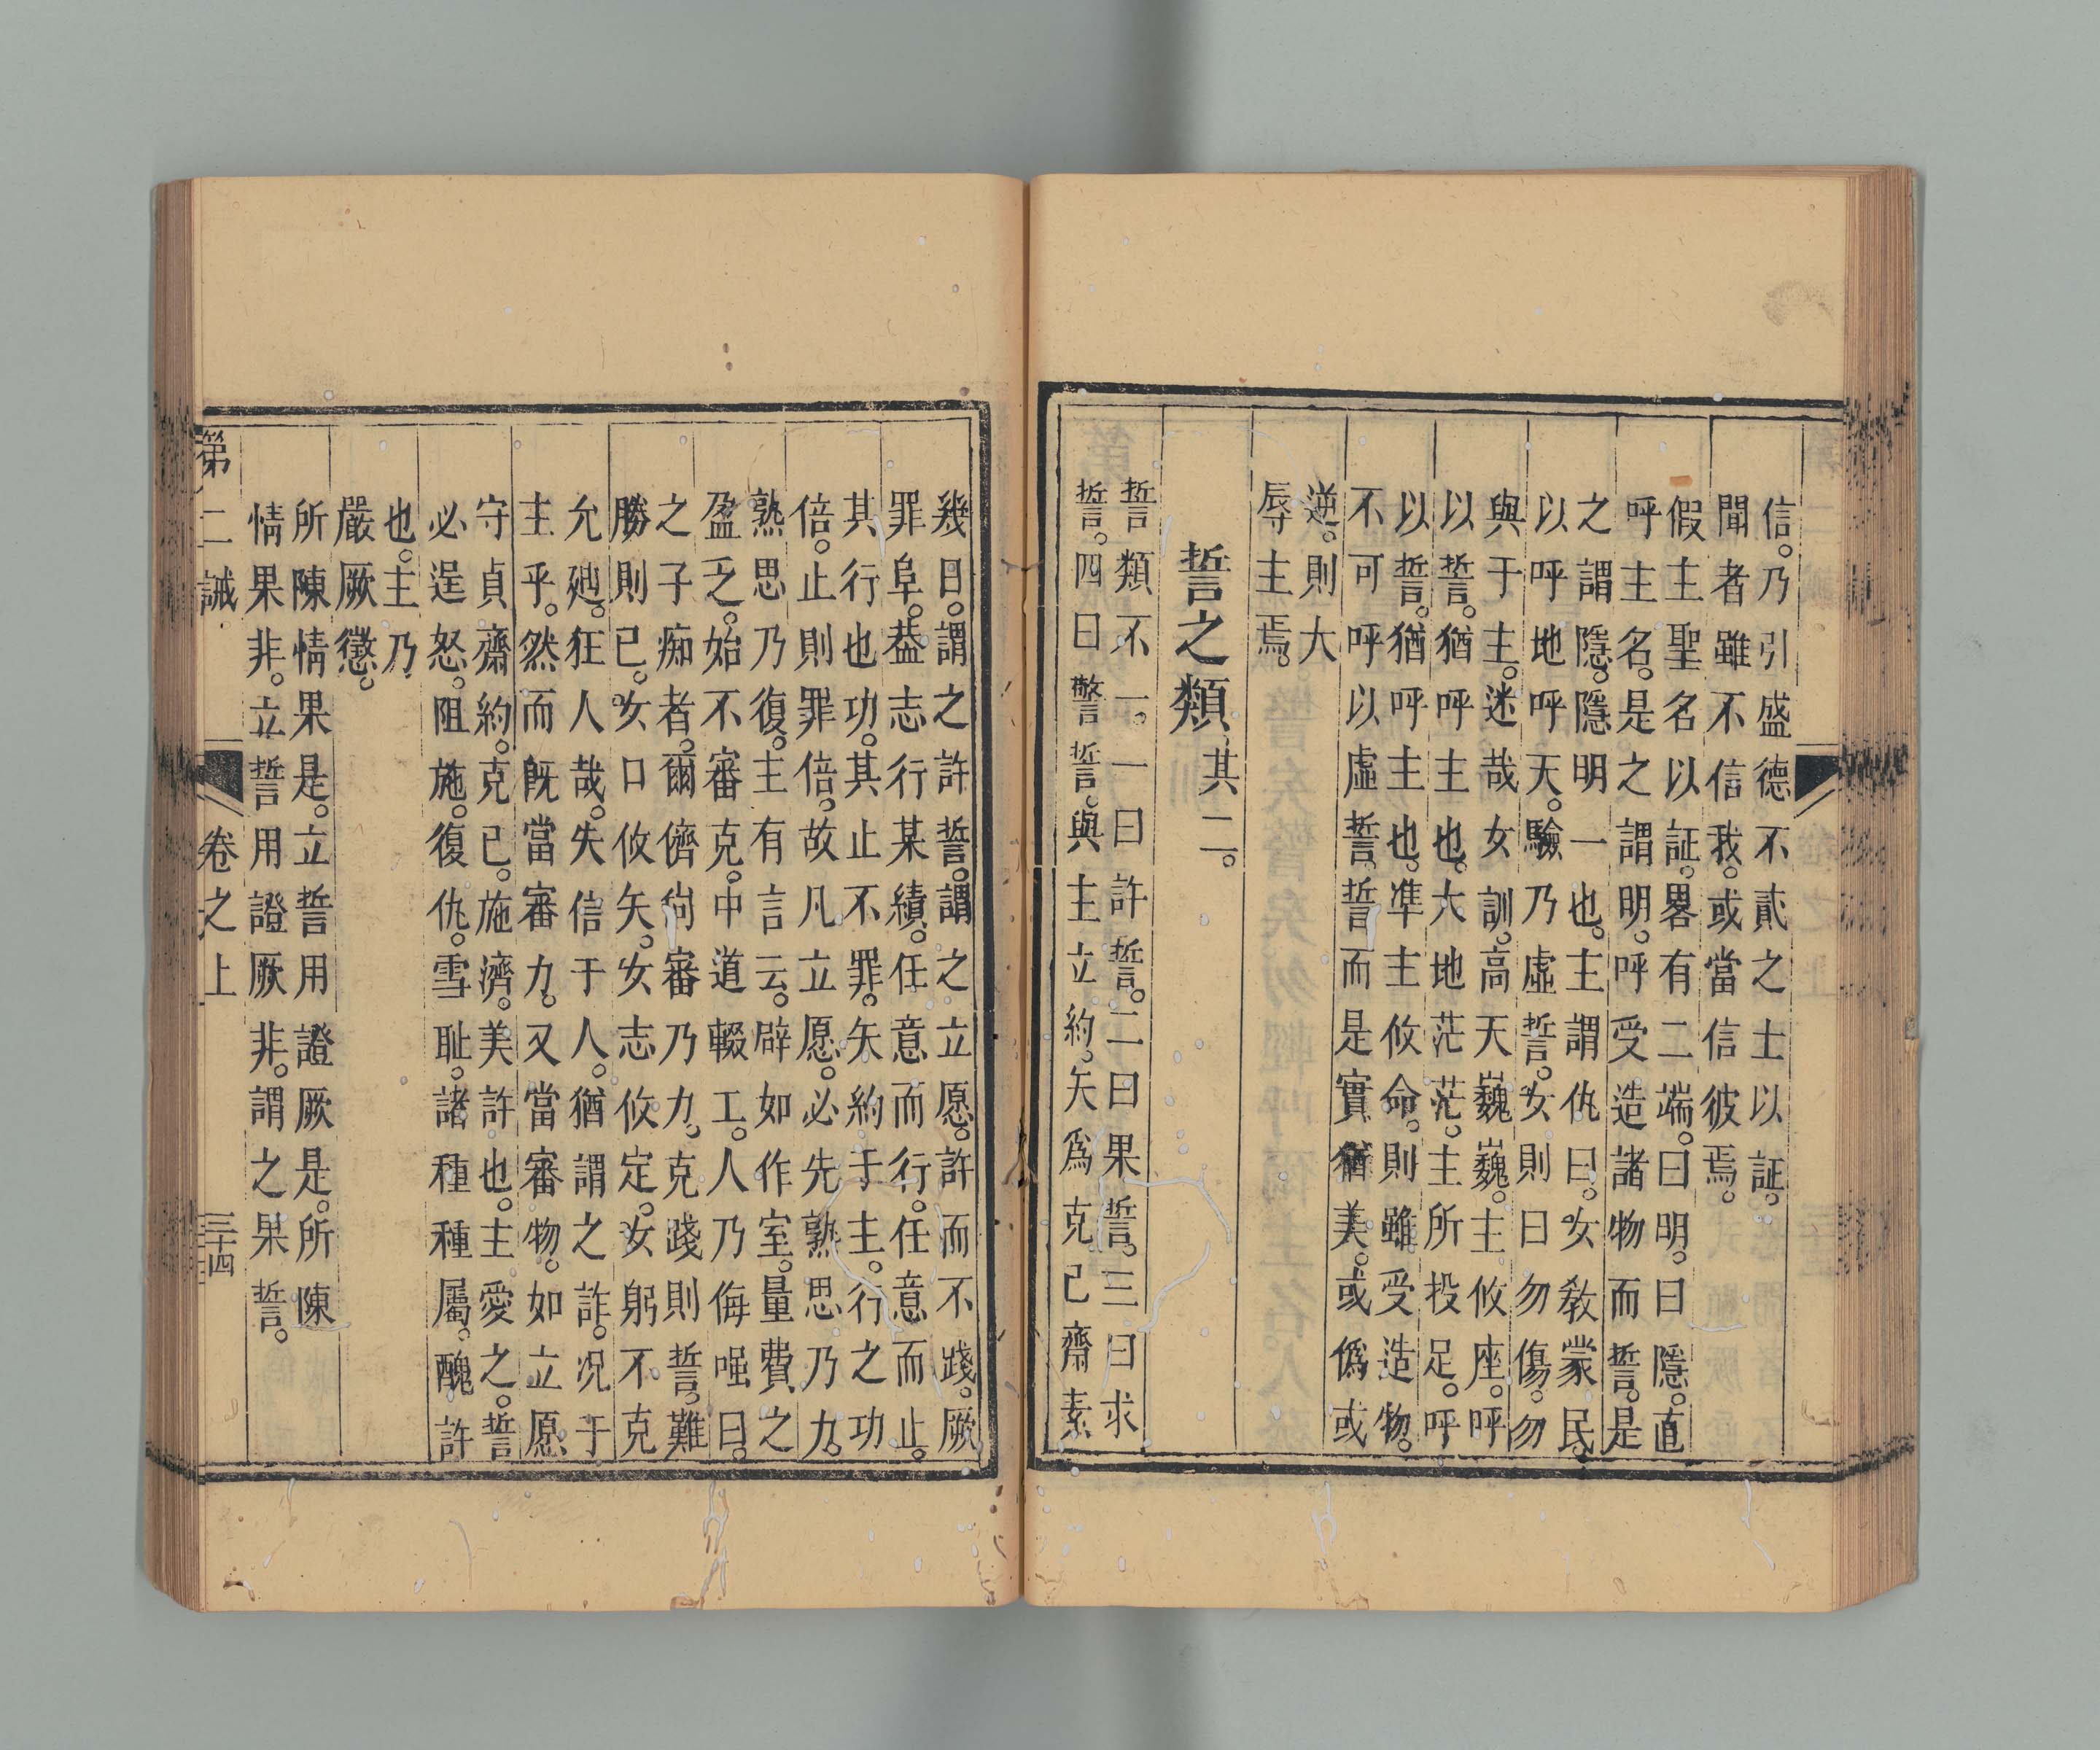 信。乃引盛德不貳之士以証。
聞者雖不信我。或當信彼焉。
假主聖名以証。畧有二端。曰明。曰隱。直
呼主名。是之謂明。呼受造諸物而誓。是
之謂隱。隱明一也。主謂仇曰。女敎蒙民。
以呼地呼天。驗乃虛誓。女則曰勿傷。勿
與于主。迷哉女訓。高天巍巍。主攸座。呼
以誓。猶呼主也。大地茫茫。主所投足。呼
以誓。猶呼主也。凖主攸命。則雖受造物。
不可呼以虛誓。誓而是實猶美。或僞或
逆。則大
辱主焉。
誓之類其二。
誓類不一。一曰許誓。二曰果誓。三曰求
誓。四曰警誓。與主立約。矢爲克己齋素
幾日。謂之許誓。謂之立愿。許而不踐。厥
罪阜。葢志行某績。任意而行。任意而止。
其行也功。其止不罪。矢約于主。行之功
倍。止則罪倍。故凡立愿。必先熟思乃力。
熟思乃復。主有言云。辟如作室。量費之
盈乏。始不審克。中道輟工。人乃侮啒曰。
之子痴者。爾儕尙審乃力。克踐則誓。難
勝則已。女口攸矢。女志攸定。女躬不克
允廸。狂人哉。失信于人。猶謂之詐。况于
主乎。然而既當審力。又當審物。如立愿
守貞齋約。克已。施濟。美許也。主愛之。誓
必逞怒。阻施。復仇。雪耻。諸種種屬。醜許
也。主乃
嚴厥懲。
所陳情果是。立誓用證厥是。所陳
情果非。立誓用證厥非。謂之果誓。
第二誡 卷之上 三十四